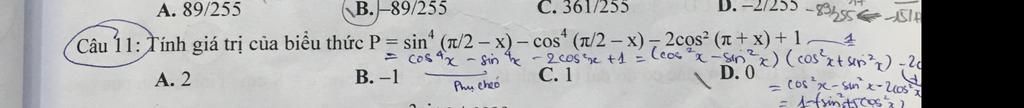 A. 89/255 B. –89/255 C. 361/255 D. –2/255 -89/255 ←
Câu 11: Tính giá trị của biểu thức P = sin⁴ (π/2 – x) – cos⁴ (π/2 – x) – 2cos² (π + x) + 1
= cos⁴x - sin⁴x - 2cos²x + 1 = (cos²x - sin²x) (cos²x + sin²x)
A. 2 B. –1 C. 1 D. 0
Phụ chéo
= cos²x - sin²x - 2cos²x